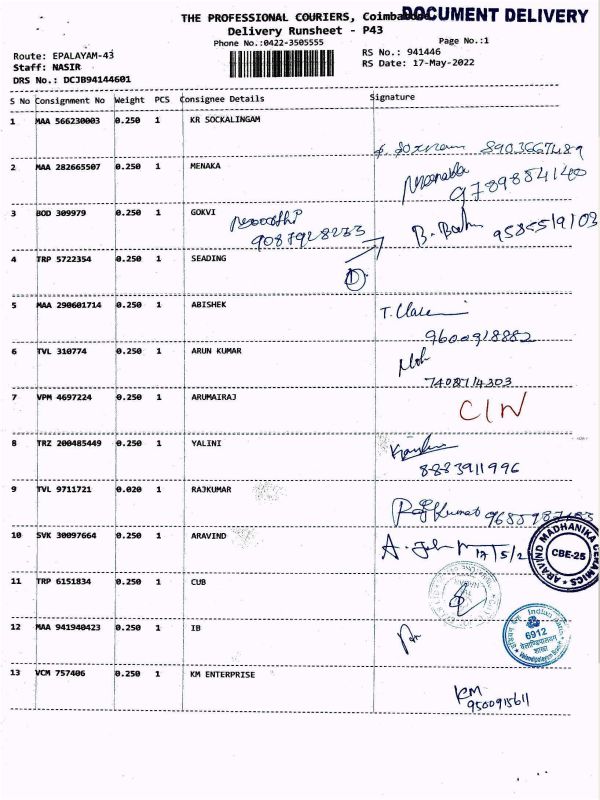 THE PROFESSIONAL COURIERS, Coimbatore
DOCUMENT DELIVERY
Delivery Runsheet - P43
Phone No.:0422-3505555
Page No.:1
Route: EPALAYAM-43
RS No.: 941446
Staff: NASIR
RS Date: 17-May-2022
DRS No.: DCJB94144601
S No Consignment No Weight PCS Consignee Details Signature
1 MAA 566230003 0.250 1 KR SOCKALINGAM
8903667489
2 MAA 282665507 0.250 1 MENAKA
Menaka
9789884140
3 BOD 309979 0.250 1 GOKVI
9087928233
9585519103
4 TRP 5722354 0.250 1 SEADING
1
5 MAA 290601714 0.250 1 ABISHEK
9600918882
6 TVL 310774 0.250 1 ARUN KUMAR
7408714303
7 VPM 4697224 0.250 1 ARUMAIRAJ
C/N
8 TRZ 200485449 0.250 1 YALINI
8883911996
9 TVL 9711721 0.020 1 RAJKUMAR
Rajkumar
10 SVK 30097664 0.250 1 ARAVIND
17/5/2
ARAVIND MADHANIKA CERAMICS
CBE-25
11 TRP 6151834 0.250 1 CUB
12 MAA 941940423 0.250 1 IB
Indian Bank
6912
शाखा
Velandipalayam Branch
13 VCM 757406 0.250 1 KM ENTERPRISE
KM
9500915611